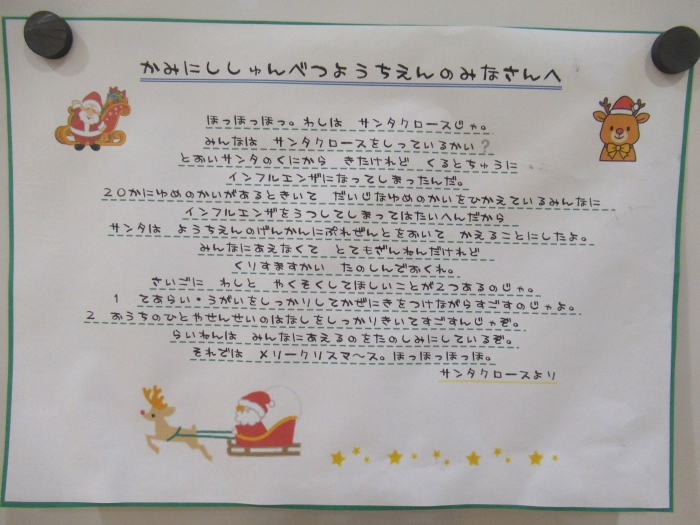 かみにししゅんべつようちえんのみなさんへ
ほっほっほっ。わしは　サンタクロースじゃ。
みんなは　サンタクロースをしっているかい？
とおいサンタのくにから　きたけれど　くるとちゅうに
インフルエンザになってしまったんだ。
20かにゆめのかいがあるときいて　だいじなゆめのかいをひかえているみんなに
インフルエンザをうつしてしまってはたいへんだから
サンタは　ようちえんのげんかんにぷれぜんとをおいて　かえることにしたよ。
みんなにあえなくて　とてもざんねんだけれど
くりすますかい　たのしんでおくれ。
さいごに　わしと　やくそくしてほしいことが2つあるのじゃ。
1　てあらい・うがいをしっかりしてかぜにきをつけながらすごすのじゃよ。
2　おうちのひとやせんせいのはなしをしっかりきいてすごすんじゃぞ。
らいねんは　みんなにあえるのをたのしみにしているぞ。
それでは　メリークリスマ～ス。ほっほっほっほ。
サンタクロースより